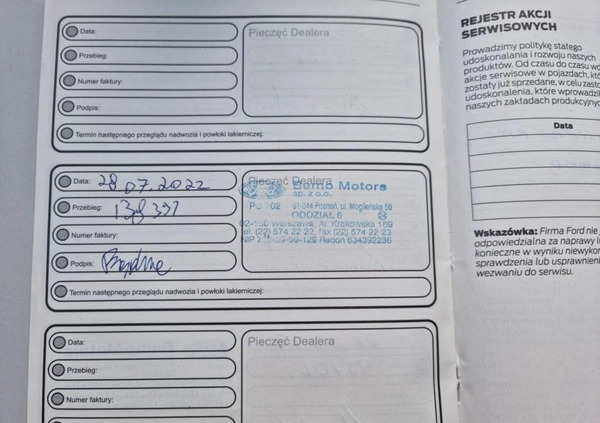 Data:
Przebieg:
Numer faktury:
Podpis:
Pieczęć Dealera
Termin następnego przeglądu nadwozia i powłoki lakierniczej:
Data: 28.07.2022
Przebieg: 138 391
Numer faktury:
Podpis:
Pieczęć Dealera
Bemo Motors
sp. z o.o.
61-044 Poznań, ul. Mogileńska 50
ODDZIAŁ 5
02-180 Warszawa, Al. Krakowska 169
tel. (22) 574 22 22, fax (22) 574 22 23
Regon 634392236
Termin następnego przeglądu nadwozia i powłoki lakierniczej:
Data:
Przebieg:
Numer faktury:
Pieczęć Dealera
REJESTR AKCJI
SERWISOWYCH
Prowadzimy politykę stałego
udoskonalania i rozwoju naszych
produktów. Od czasu do czasu
akcje serwisowe w pojazdach,
zostały już sprzedane, w celu
udoskonalenia, które
naszych zakładach
Data
Wskazówka: Firma Ford nie
odpowiedzialna za naprawy
konieczne w wyniku
sprawdzenia lub
wezwaniu do serwisu.